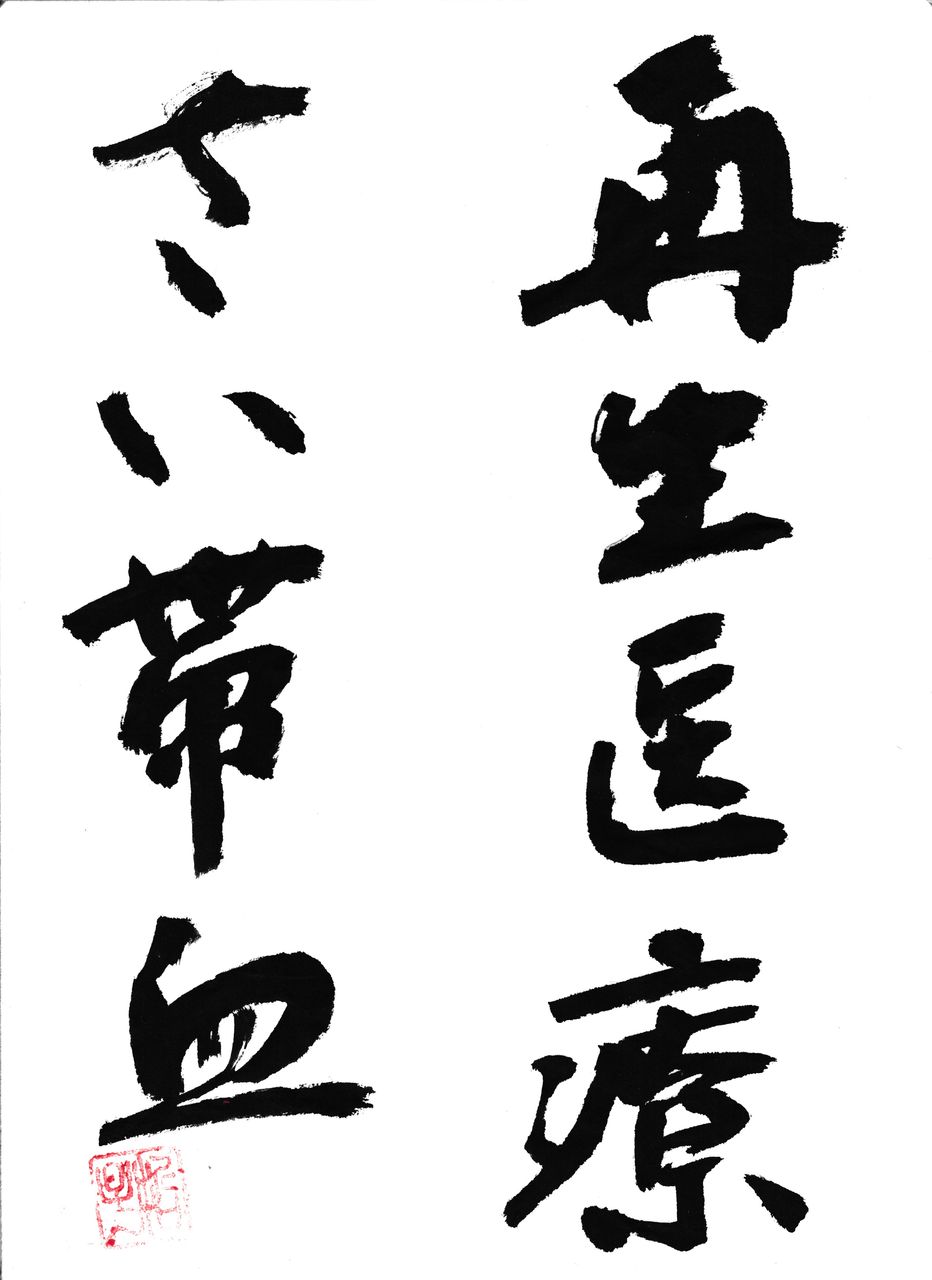 再生医療
さい帯血